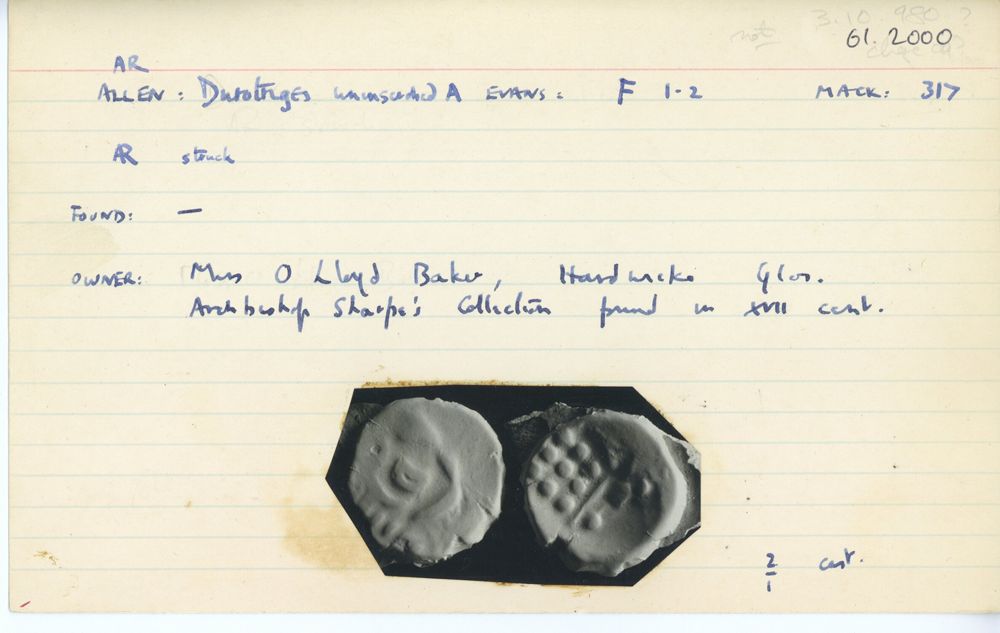 3.10.980 ?
not 61.2000
AR
ALLEN: Durotriges uninscribed A EVANS: F 1-2 MACK: 317
AR struck
FOUND: —
OWNER: Miss O Lloyd Baker, Hardwicke Glos.
Archbishop Sharpe's Collection found in XVII cent.
2/1 cast.